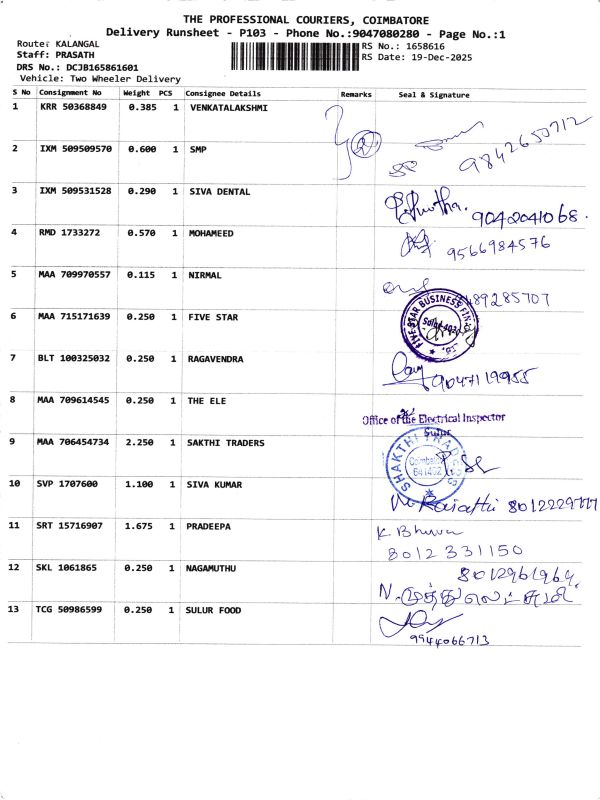 THE PROFESSIONAL COURIERS, COIMBATORE
Delivery Runsheet - P103 - Phone No.:9047080280 - Page No.:1
Route: KALANGAL
RS No.: 1658616
Staff: PRASATH
RS Date: 19-Dec-2025
DRS No.: DCJB165861601
Vehicle: Two Wheeler Delivery
S No Consignment No Weight PCS Consignee Details Remarks Seal & Signature
1 KRR 50368849 0.385 1 VENKATALAKSHMI
9842650712
2 IXM 509509570 0.600 1 SMP
3 IXM 509531528 0.290 1 SIVA DENTAL
9042041068.
4 RMD 1733272 0.570 1 MOHAMEED
9566984576
5 MAA 709970557 0.115 1 NIRMAL
89285707
6 MAA 715171639 0.250 1 FIVE STAR
FIVE STAR BUSINESS FINA
7 BLT 100325032 0.250 1 RAGAVENDRA
9047119955
8 MAA 709614545 0.250 1 THE ELE
Office of the Electrical Inspector
Sulur
9 MAA 706454734 2.250 1 SAKTHI TRADERS
SHAKTHI TRADERS
Coimbatore
641402
10 SVP 1707600 1.100 1 SIVA KUMAR
8012229777
11 SRT 15716907 1.675 1 PRADEEPA
K Bhuva
8012 331150
12 SKL 1061865 0.250 1 NAGAMUTHU
8012961969.
N.முத்துலெட்சுமி
13 TCG 50986599 0.250 1 SULUR FOOD
9944066713